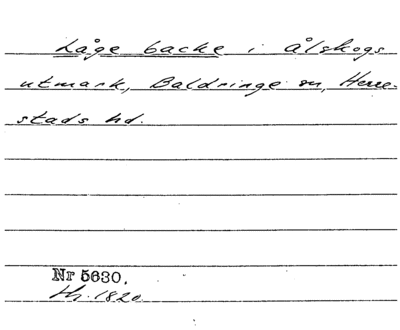 Låge backe i Ålskogs
utmark, Baldringe sn, Herre-
stads hd.
Nr 5630.
Th. 1820